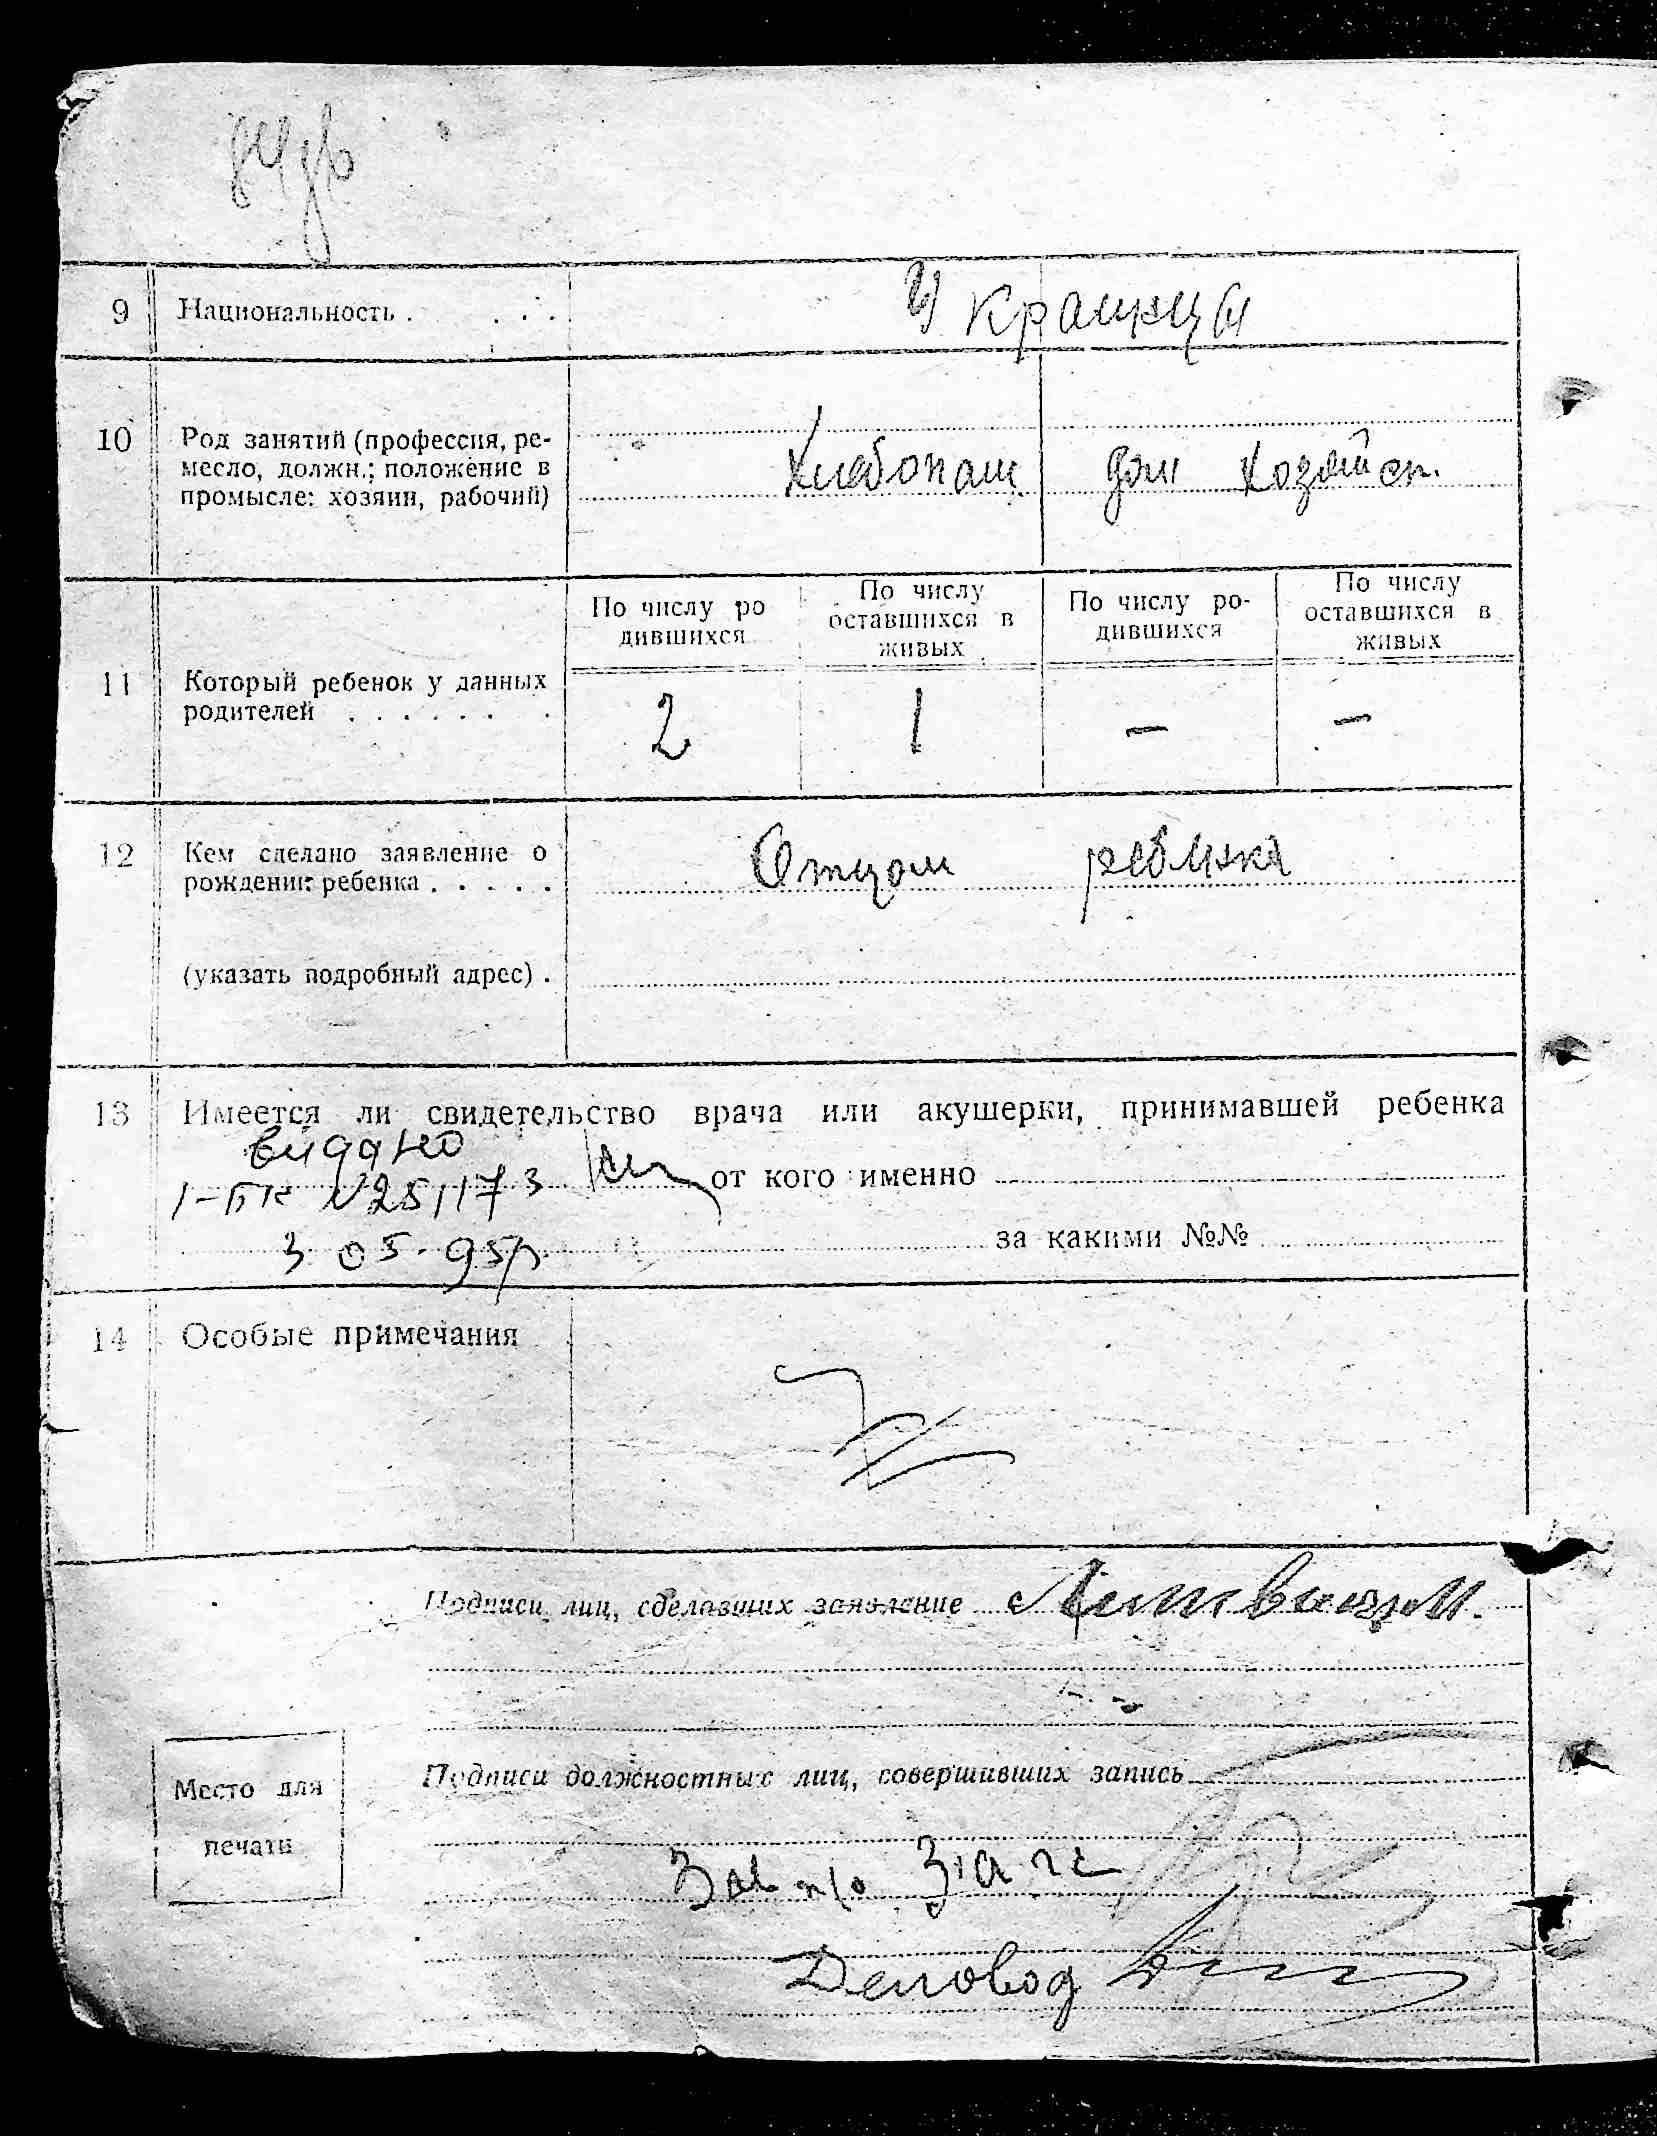 9 Национальность . . . . Украинцы
10 Род занятий (профессия, ре-
месло, должн.; положение в
промысле: хозяин, рабочий)
Хлебопаш дом хозяйст.
По числу ро
дившихся
По числу
оставшихся в
живых
По числу ро-
дившихся
По числу
оставшихся в
живых
11 Который ребенок у данных
родителей . . . . . . .
2 1 — —
12 Кем сделано заявление о
рождении ребенка . . . . .
Отцом ребенка
(указать подробный адрес) .
13 Имеется ли свидетельство врача или акушерки, принимавшей ребенка
видано
I-БК №251173 от кого именно
3 05. 95р. за какими №№
14 Особые примечания
Подписи лиц, сделавших заявление
Подписи должностных лиц, совершивших запись
Место для
печати
Деловод